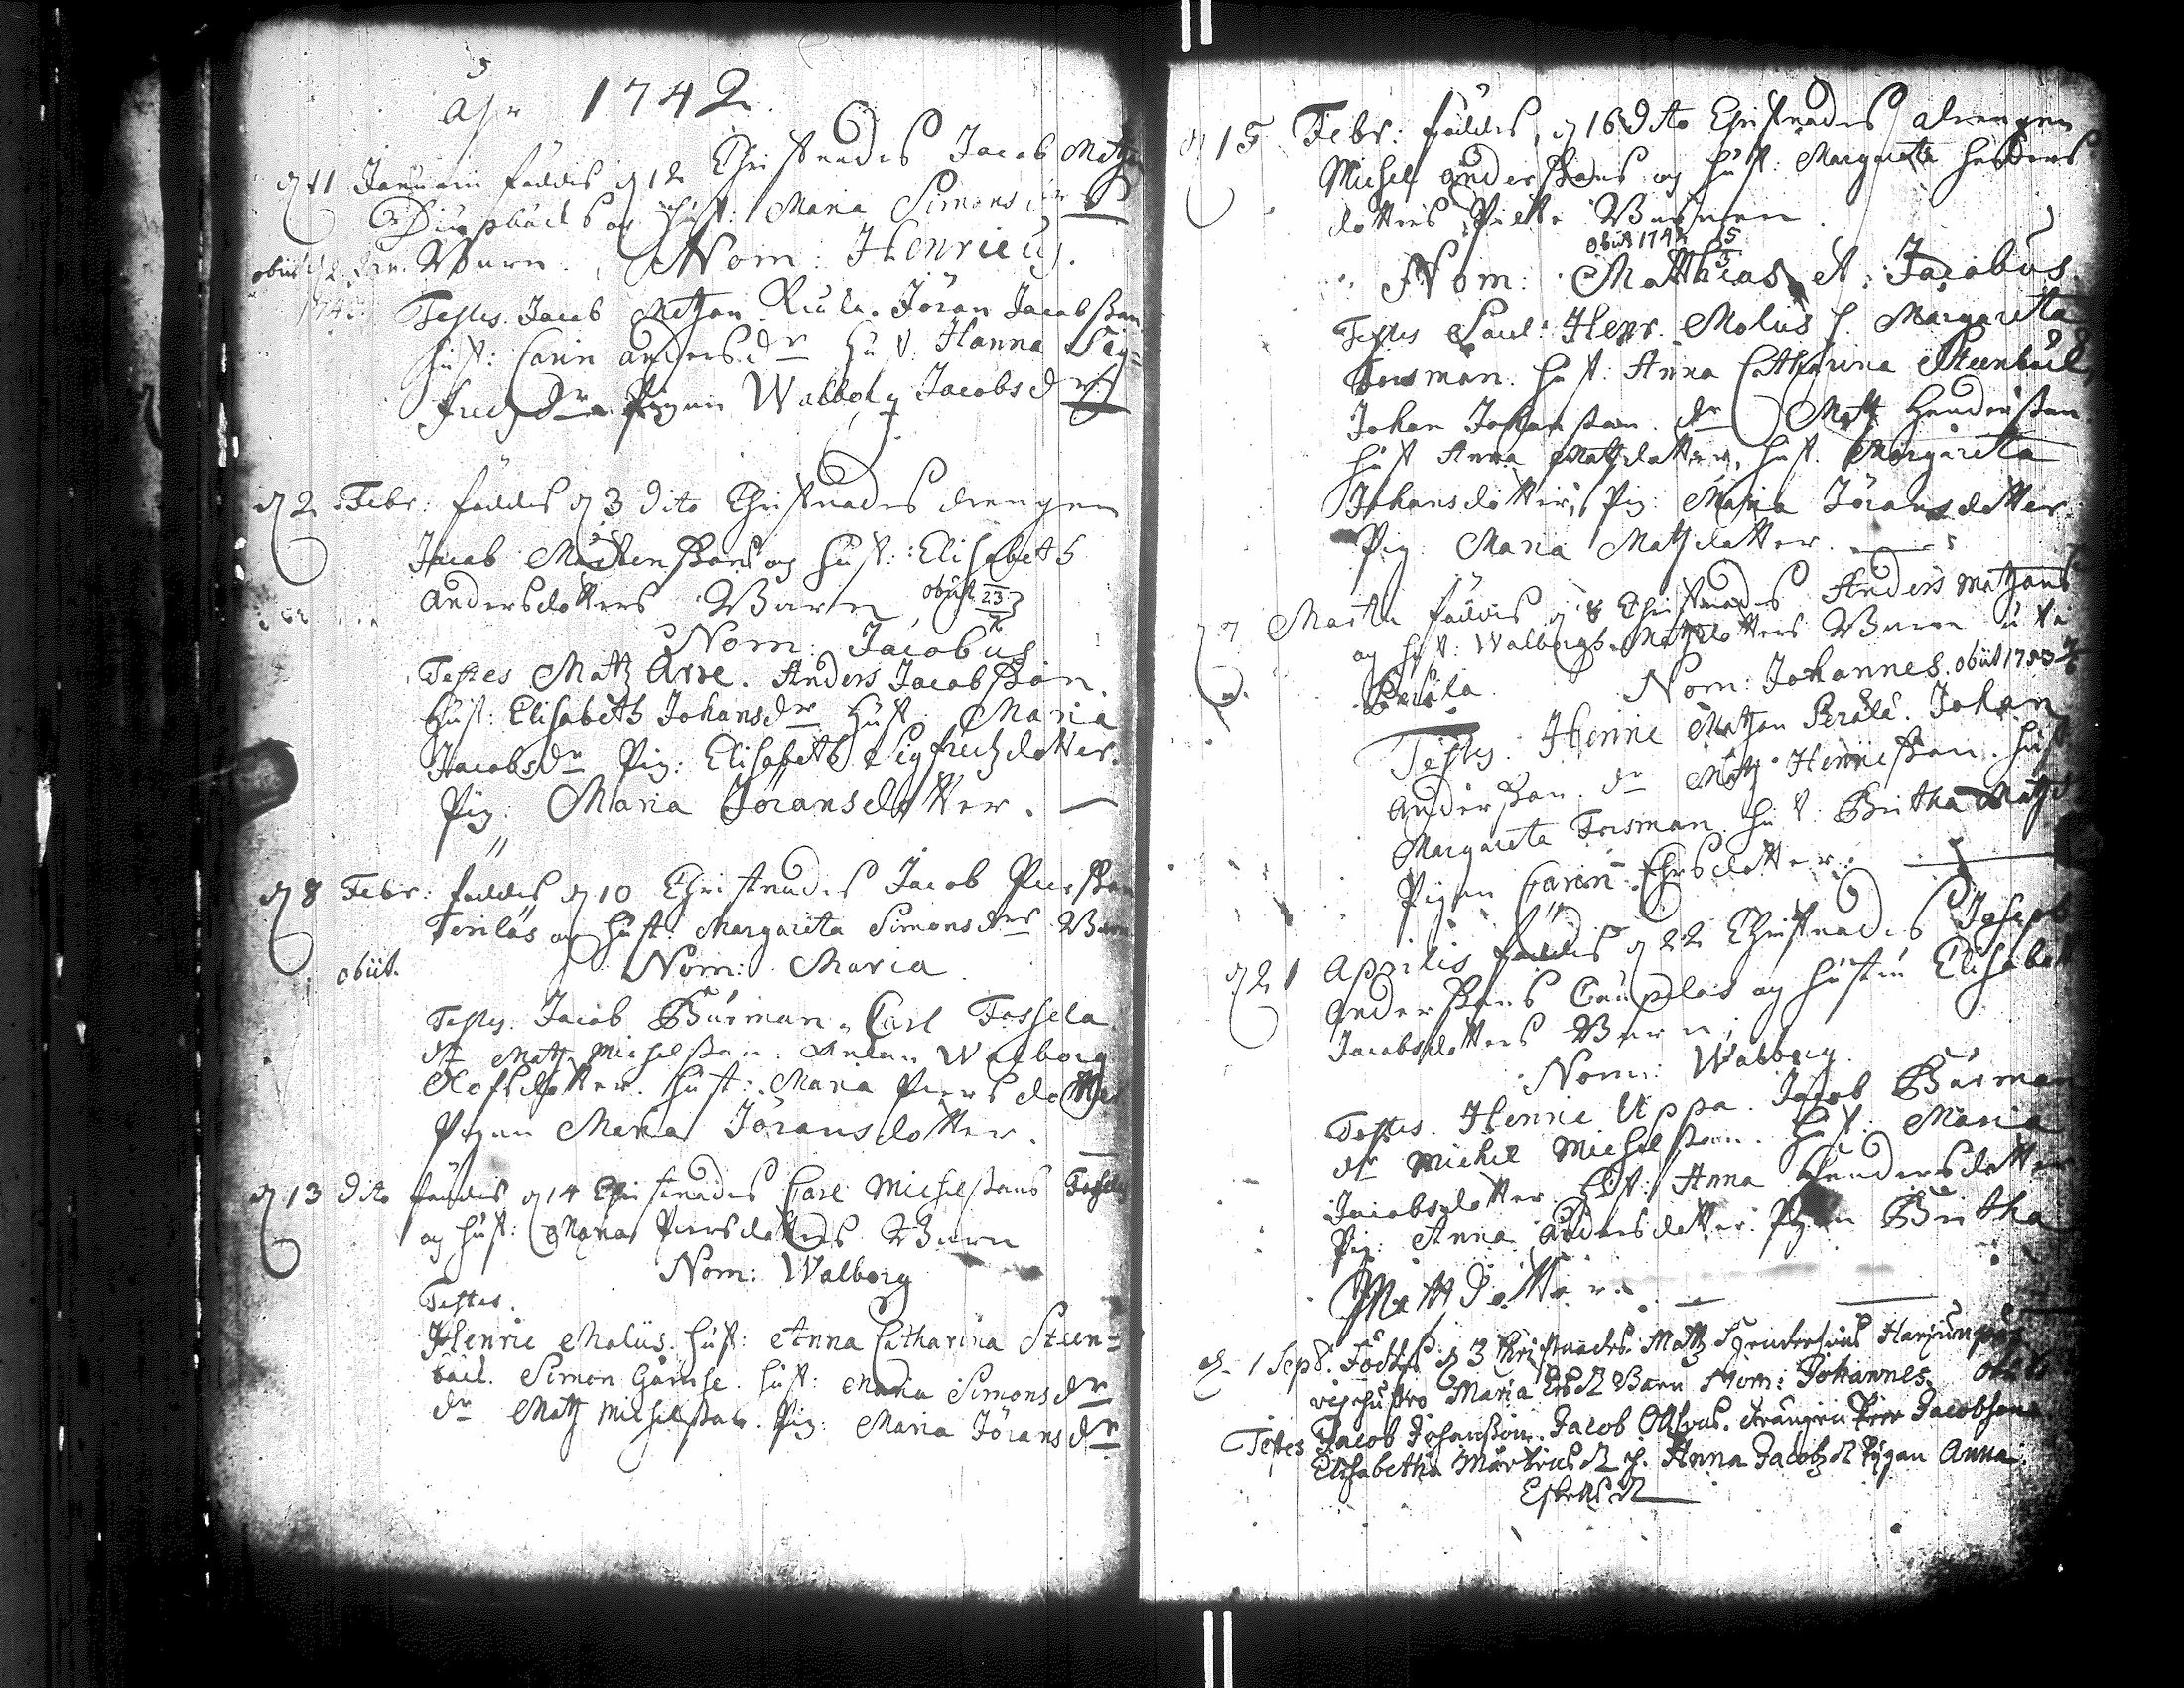 Åhr 1742.
d 11 Januarii föddes d 12 Christnades Jacob Matzon
og Hust: Maria Simons dr
obiit Barn. Nom: Henricus.
Testes. Jacob Matzon Jöran Jacobsson
Hust: Carin Anders dr Hust. Hanna Sig-
fredz dr Pigan Walborg Jacobs dr
d 2 Febr: föddes d 3 dito Christnades drengen
Jacob Mårtenssons og Hust: Elisabeth
Andersdotters Barn obiit 23
Nom: Jacobus
Testes Matz Arve. Anders Jacobsson.
Hust: Elisabeth Johansdr Hust. Maria
Jacobsdr Pig: Elisabeth Sigfredzdotter.
Pig: Maria Jöransdotter.
d 8 Febr: föddes d 10 Christnades Jacob Persson
og Hust: Margareta Simonsdrs Barn
obiit. Nom: Maria
Testes. Jacob Burman. Carl Fossela
dr Matz Michelsson. Walborg
Olofsdotter. Hust: Maria Persdotter
Pigan Maria Jöransdotter.
d 13 dito föddes d 14 Christnades Carl Michelssons
og Hust: Maria Persdotters Barn
Nom: Walborg
Testes.
Henric Molius. Hust: Anna Catharina Steen-
bäck. Simon Hust: Maria Simons dr
dr Matz Michelsson. Pig: Maria Jörans dr
d 15 Febr: föddes, d 16 dito Christnades drengen
Michel Anderssons og Hust: Margareta
dotters Barnen
obiit 1742 5/5
Nom: Matthias et Jacobus.
Testes Henr. Molius h. Margareta
Forsman. Hust: Anna Catharina Steenbäck
Johan Johansson. dr Matz Hendersson
Hust Anna Matzdotter, Hust. Margareta
Johansdotter, Pig: Maria Jöransdotter.
Pig: Maria Matzdotter.
d 7 Martii föddes d 8 Christnades Anders Matzons
og Hust: Walborgs Matzdotters Barn
Perälä. Nom: Johannes. obiit 1753
Testes. Henric Matzon Perälä. Johan
Andersson. dr Matz Henricsson. Hust
Margareta Forsman. Hust: Britha Matzd
Pigan Carin dotter.
d 21 Aprilis föddes d 22 Christnades Joseph
Anderssons og Hustru Elisabet
Jacobsdotters Barn;
Nom: Walborg.
Testes. Henric Uppa. Jacob Burman
dr Michel Michelsson. Hust. Maria
Jacobsdotter. Hust: Anna Hendersdotter
Pig: Anna Andersdotter. Pigan Britha
Mattzdotter.
d. 1 Sept. Föddes d 3 Christnades Matz Hendersons
hustro Maria Barn Nom: Johannes. obiit
Testes Jacob Johansson. Jacob Drängen Per Jacobson
Elisabetha h. Anna Jacobz Pigan Anna